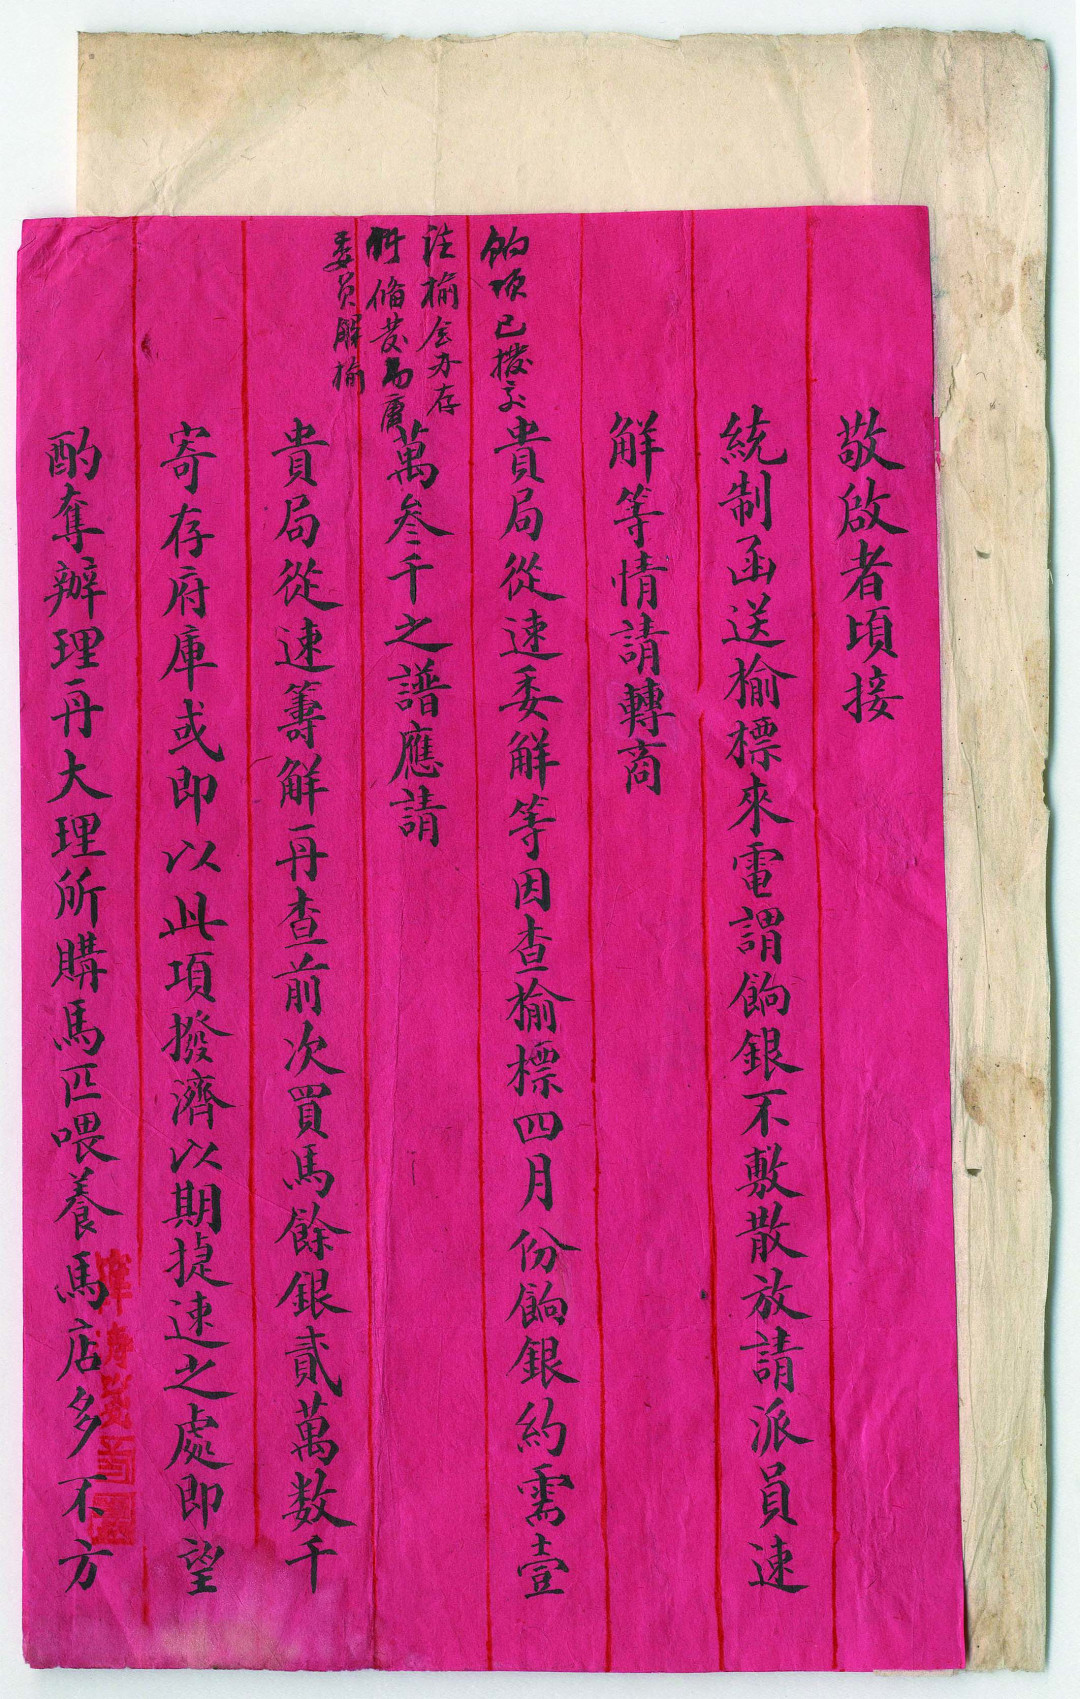 敬啟者頃接
統制函送榆標來電謂餉銀不敷散放請派員速
解等情請轉商
貴局從速委解等因查榆標四月份餉銀約需壹
萬叁千之譜應請
貴局從速籌解再查前次買馬餘銀貳萬数千
寄存府庫或即以此項撥濟以期捷速之處即望
酌奪辦理再大理所購馬匹喂養馬店多不方
餉項已撥交
榆 存
委員解榆